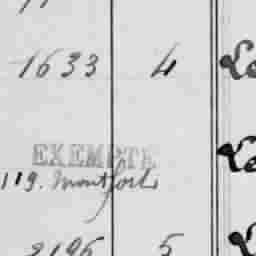 1633 4 Le
EXEMPTE Le
119. Montfort
2196 5 L